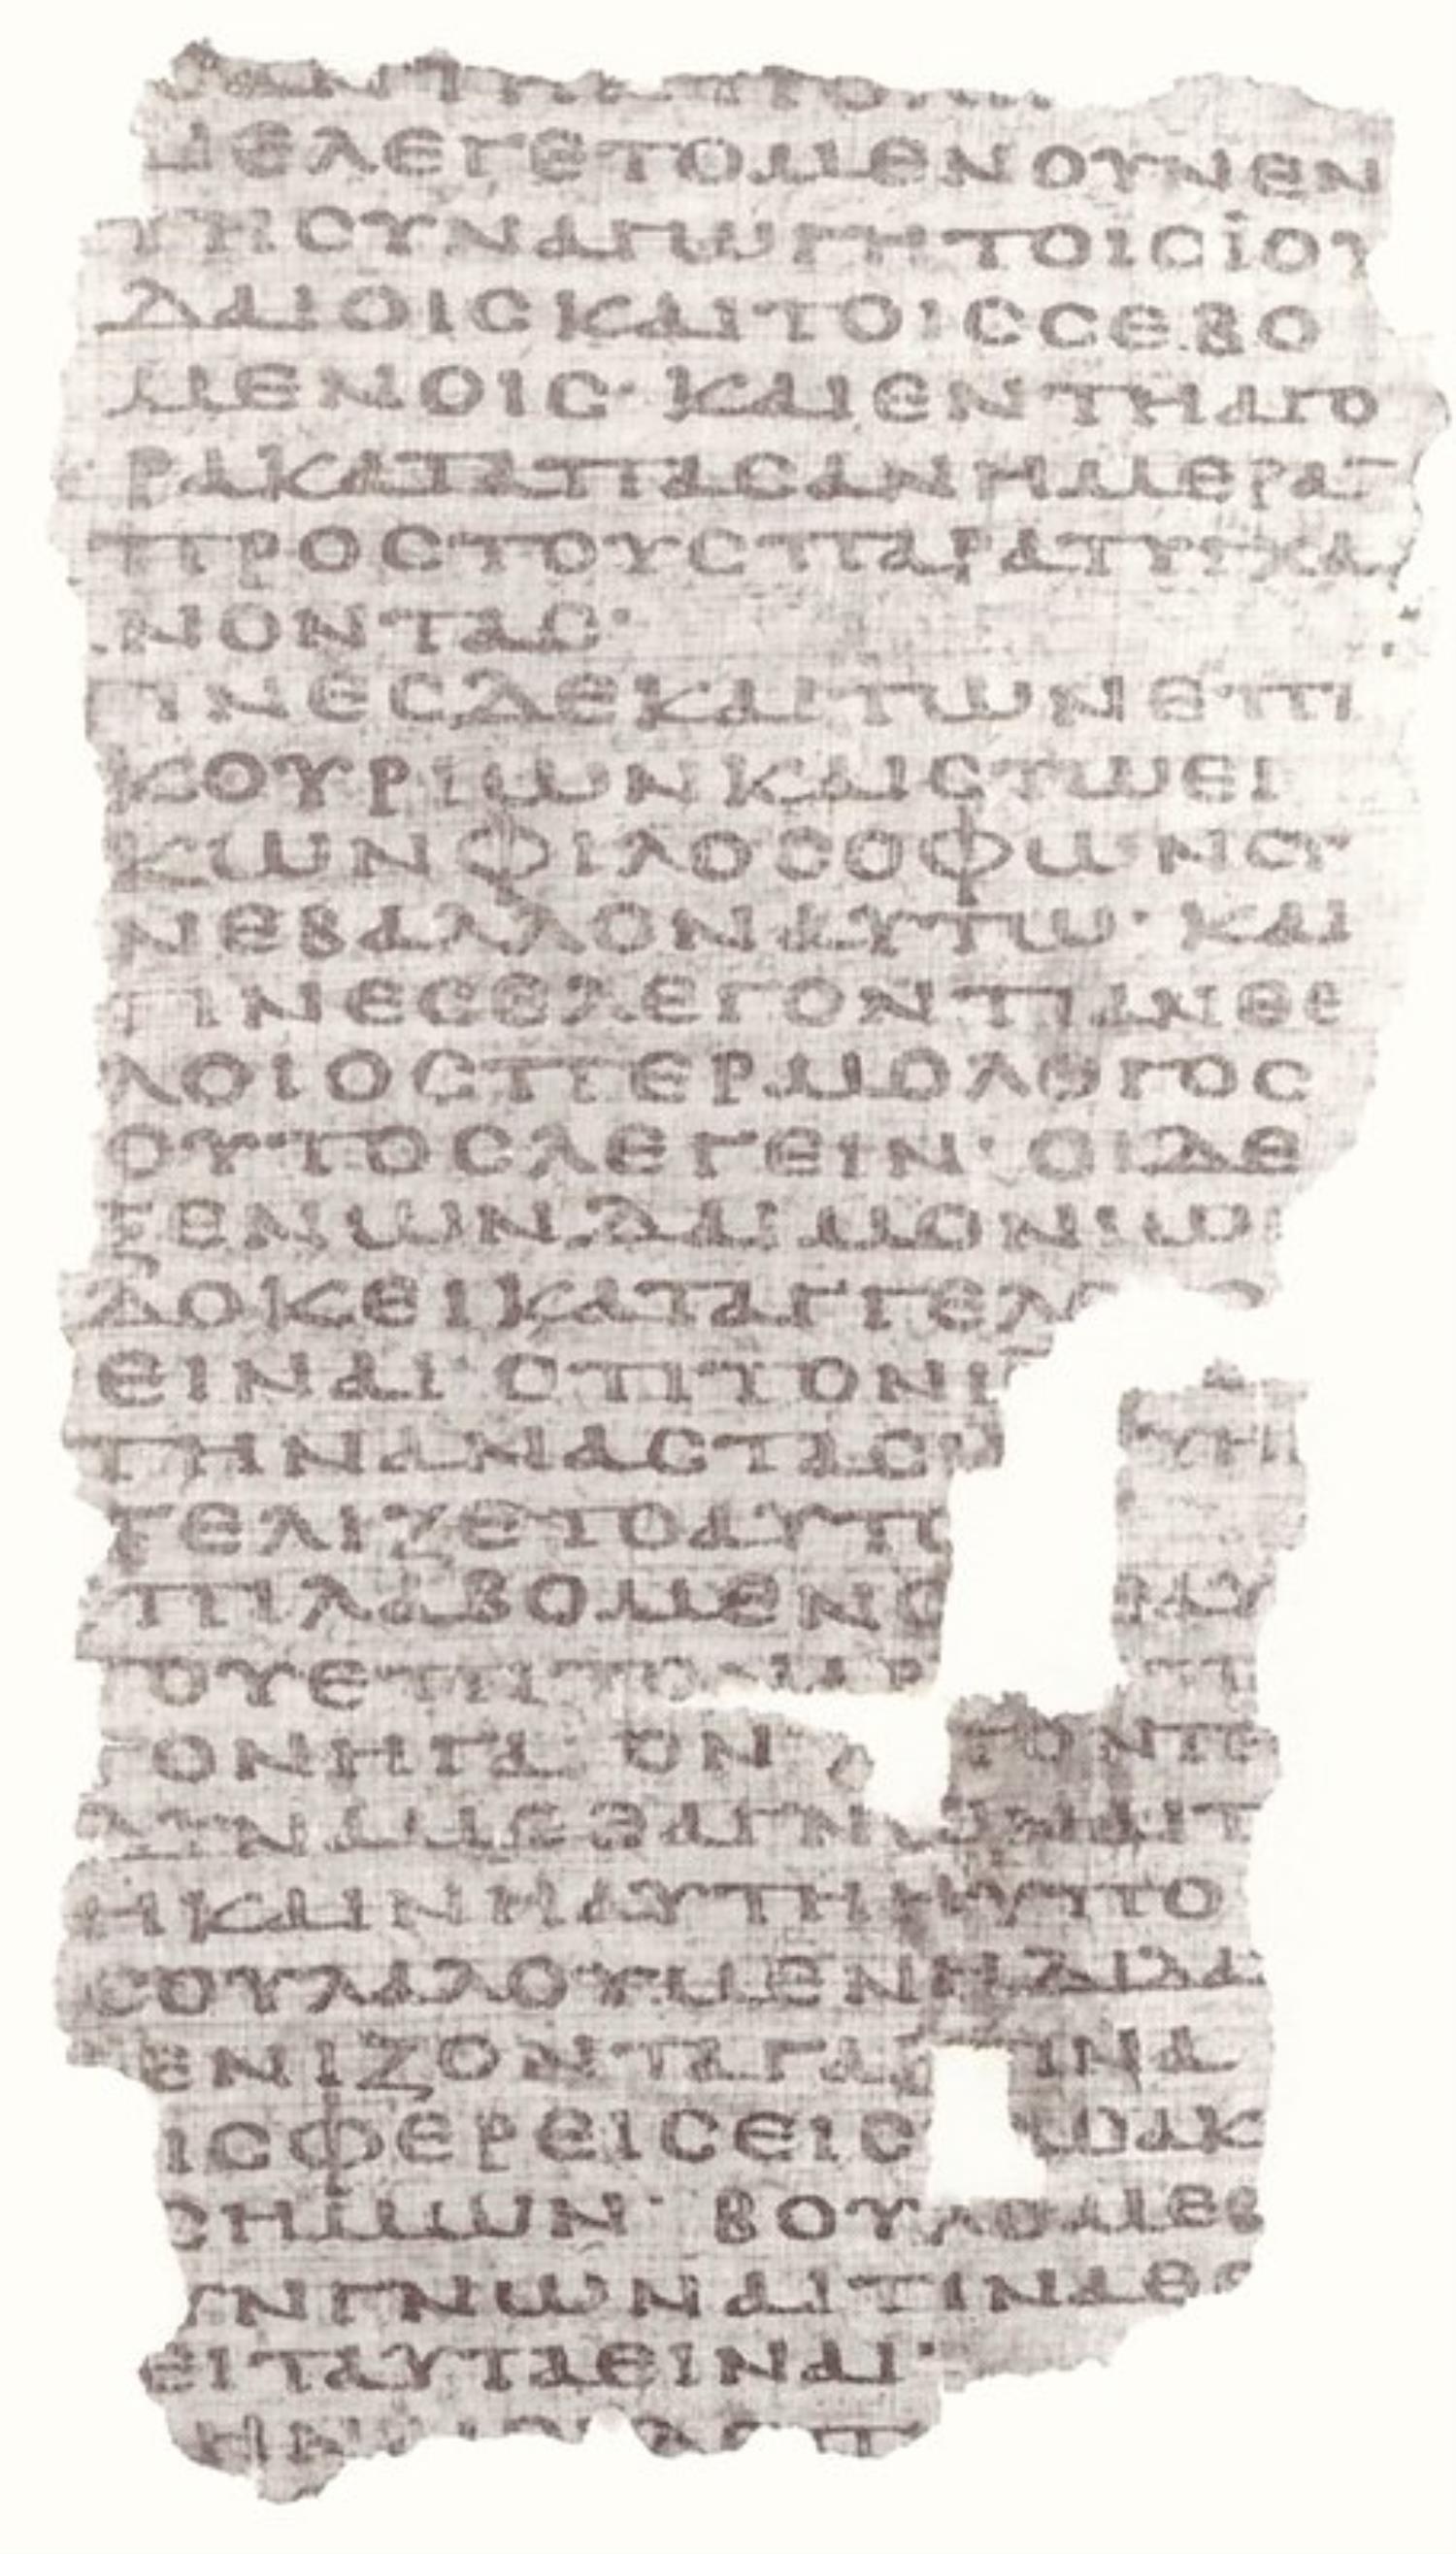 ΔΙΕΛΕΓΕΤΟΜΕΝΟΥΝΕΝ
ΤΗϹΥΝΑΓΩΓΗΤΟΙϹΪΟΥ
ΔΑΙΟΙϹΚΑΙΤΟΙϹϹΕΒΟ
ΜΕΝΟΙϹ· ΚΑΙΕΝΤΗΑΓΟ
ΡΑΚΑΤΑΠΑϹΑΝΗΜΕΡΑ¯
ΠΡΟϹΤΟΥϹΠΑΡΑΤΥΓΧΑ
ΝΟΝΤΑϹ·
ΤΙΝΕϹΔΕΚΑΙΤΩΝΕΠΙ
ΚΟΥΡΙΩΝΚΑΙϹΤΩΕΙ
ΚΩΝΦΙΛΟϹΟΦΩΝϹΥ
ΝΕΒΑΛΛΟΝΑΥΤΩ· ΚΑΙ
ΤΙΝΕϹΕΛΕΓΟΝΤΙΑΝΘΕ
ΛΟΙΟϹΠΕΡΜΟΛΟΓΟϹ
ΟΥΤΟϹΛΕΓΕΙΝ· ΟΙΔΕ
ΞΕΝΩΝΔΑΙΜΟΝΙΩ
ΔΟΚΕΙΚΑΤΑΓΓΕΛ
ΕΙΝΑΙ· ΟΤΙΤΟΝΙ
ΤΗΝΑΝΑϹΤΑϹΙ ΕΥΗΓ
ΓΕΛΙΖΕΤΟΑΥΤΟ
ΕΠΙΛΑΒΟΜΕΝΟ ΕΑΥ
ΤΟΥΕΠΙΤΟΝΑΡ Π
ΓΟΝΗΓΑ ΟΝ Λ ΓΟΝΤΕ
ΔΥΝΑΜΕΘΑΓΝΩΝΑΙΤ
ΗΚΑΙΝΗΑΥΤΗΗΥΠΟ
ϹΟΥΛΑΛΟΥΜΕΝΗΔΙΔΑ
ΕΝΙΖΟΝΤΑΓΑΡ ΙΝΑ
ΙϹΦΕΡΕΙϹΕΙϹ ΑϹΑΚ
ΑϹΗΜΩΝ· ΒΟΥΛΟΜΕΘ
ΥΝΓΝΩΝΑΙΤΙΝΑΘΕ
ΕΙΤΑΥΤΑΕΙΝΑΙ·